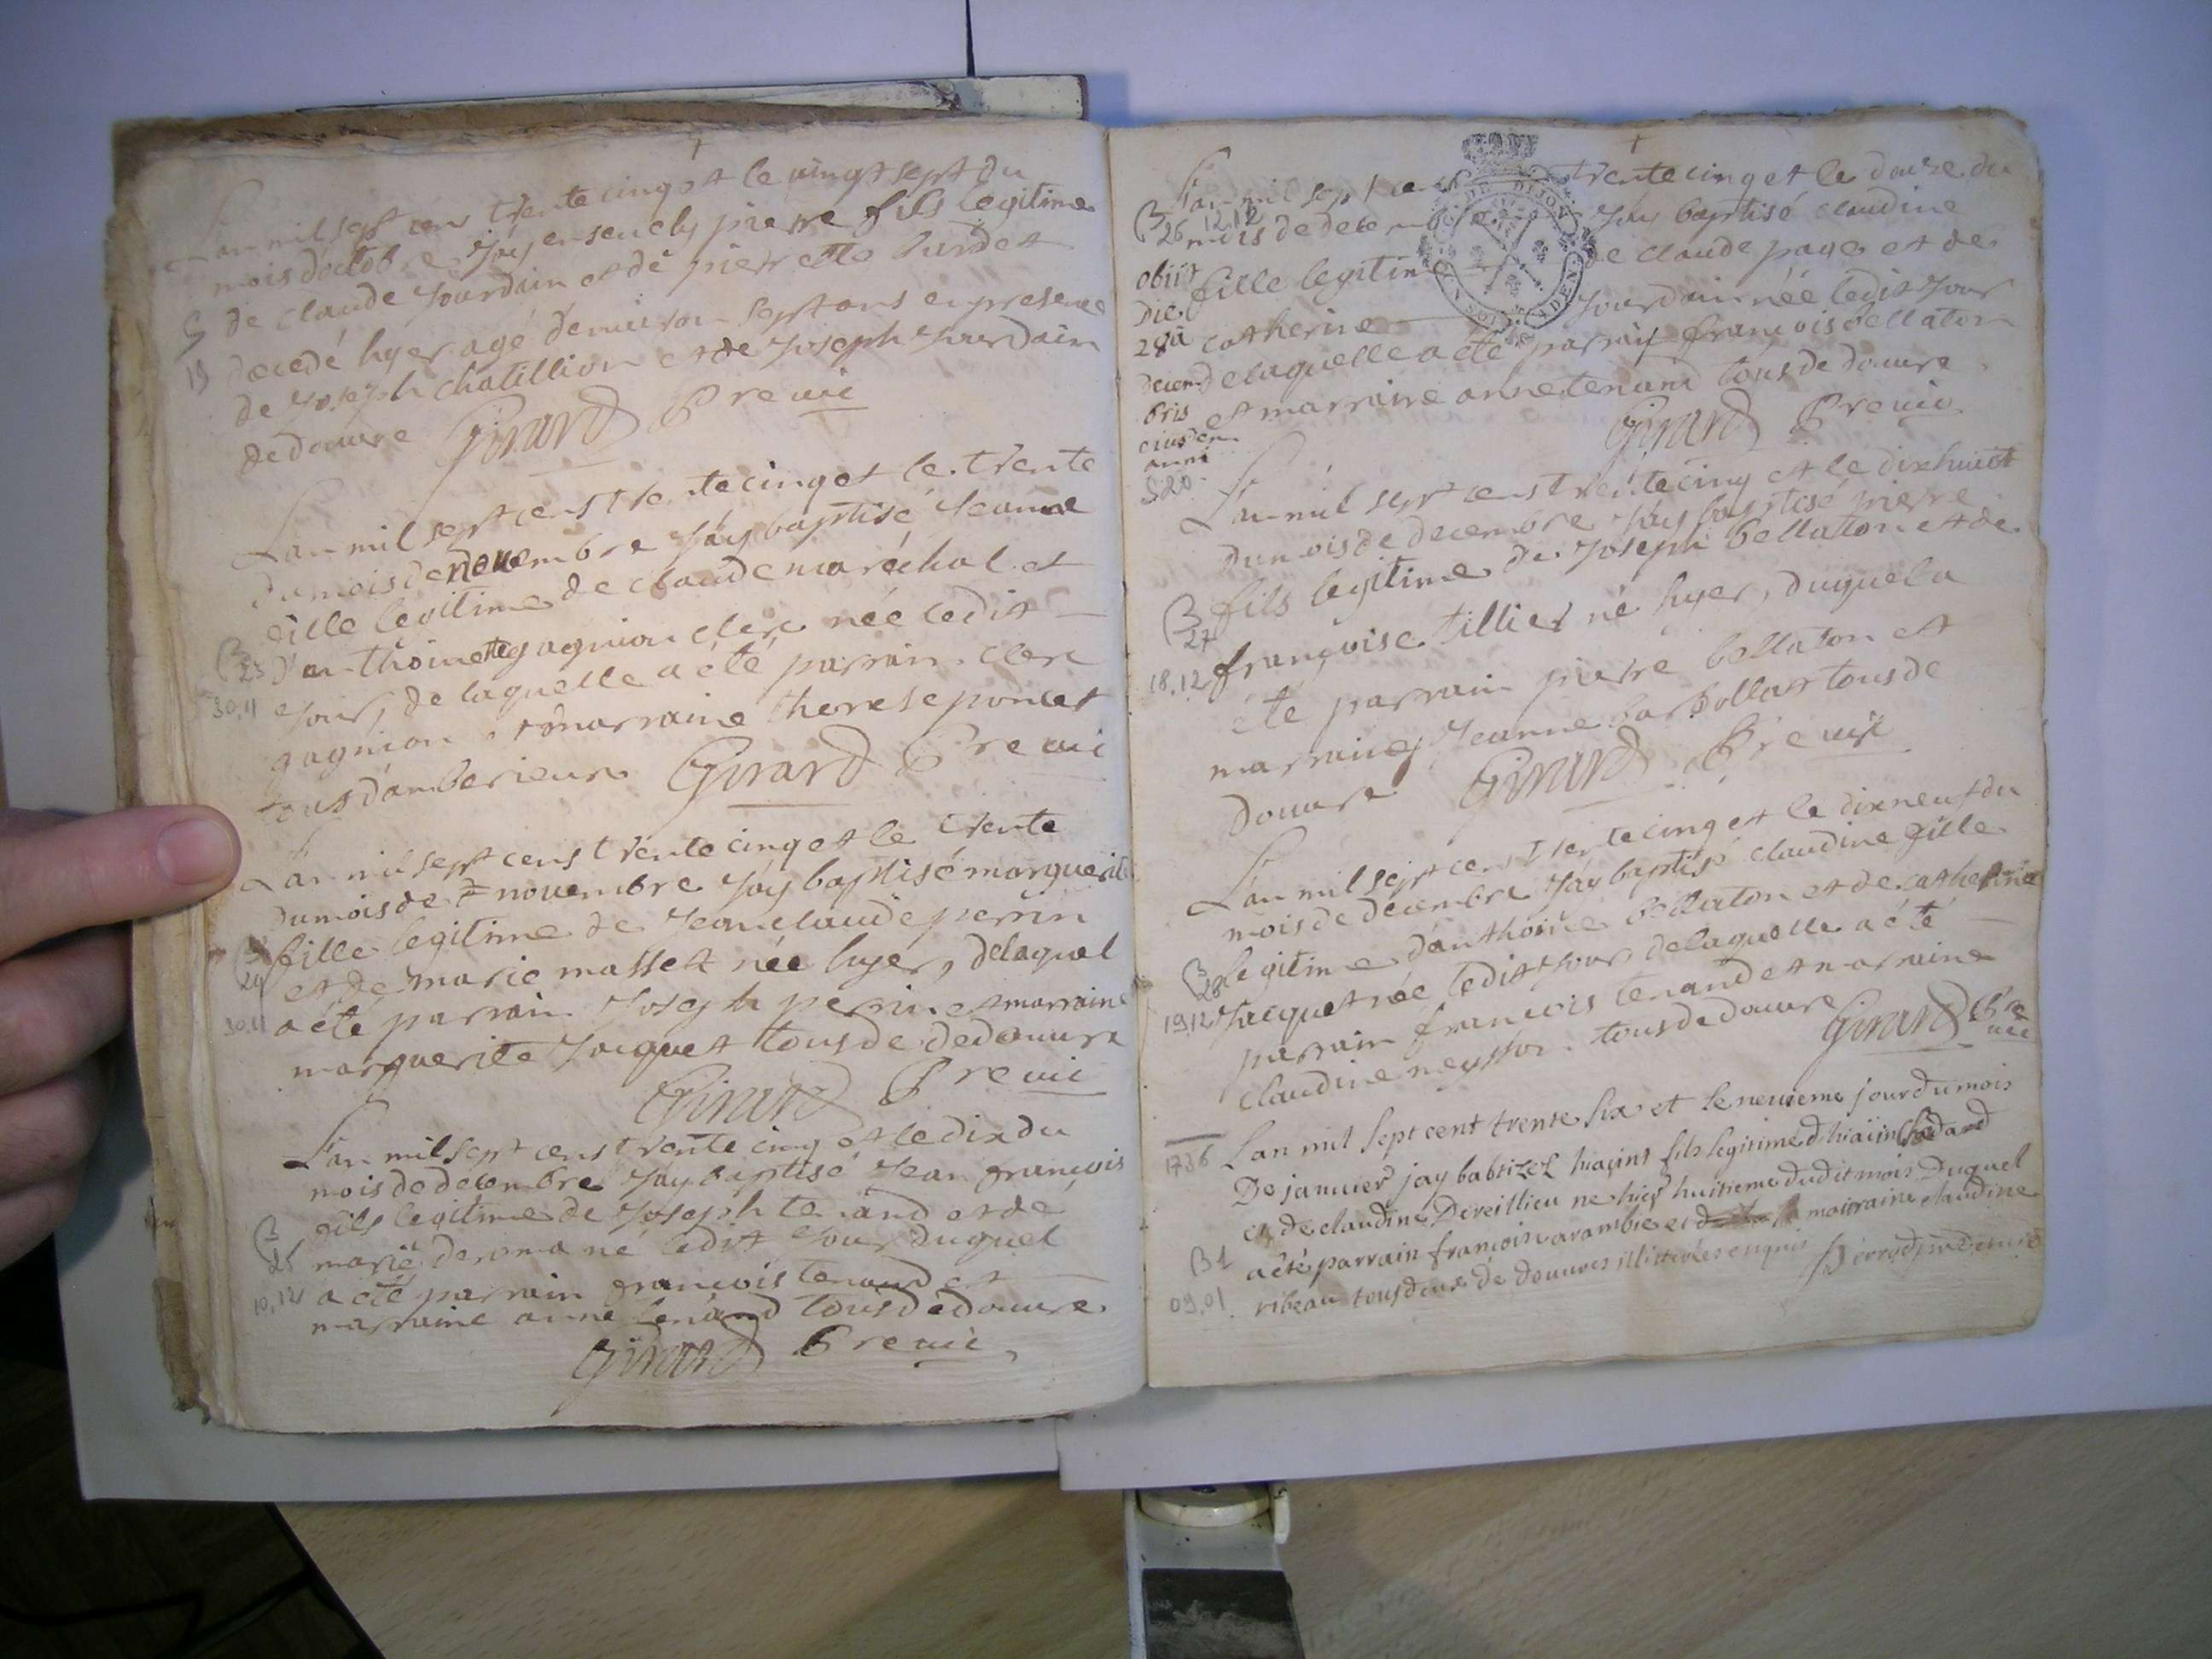 Lan mil sept cens trente cinq et le vingt sept du
mois doctobre Jay enseuely pierre fils legitime
de claude Jourdain et de pierrette burdet
S decedé hyer agé denuiron sept ans en presence
19 de Joseph chatillion et de Joseph Jourdain
de douure Girard Pre uic
Lan mil sept cens trente cinq et le trente
du mois de nouembre Jay baptisé Jeanne
fille legitime de claude maréchal et
B 23 d'anthoinette gagnion clerc née ledit
30.11 Jour, de laquelle a été parrain clerc
gagnion et marraine therese poncet
tous d'amberieux Girard Pre uic
Lan mil sept cens trente cinq et le trente
du mois de nouembre Jay baptisé marguerite
fille legitime de Jean claude perrin
B 24 et de marie masset née hyer, delaquel
30.11 a été parrain Joseph perrin et marraine
marguerite Jacquet tous de dedouure
Girard Pre uic
Lan mil sept cens trente cinq et le dix du
mois de decembre Jay baptisé Jean françois
fils legitime de Joseph tenand et de
B 25 marie deroma né ledit Jour duquel
10.12 a été parrain françois tenand et
marraine anne tenand tous de douure
Girard Pre uic
Lan mil sept cens trente cinq et le douze du
B 26 12.12 mois de decembre Jay baptisé claudine
fille legitime de claude page et de
catherine Jourdain née ledit Jour
delaquelle a été parrain françois bellaton
et marraine anne tenand tous de douure
Girard Pre uic
obiit
die
28a
decem
bris
eiusdem
anni
S 20
Lan mil sept cens trente cinq et le dixhuict
du mois de decembre Jay baptisé pierre
fils legitime de Joseph bellaton et de
B 27 françoise tillier né hyer, duquel a
18.12 été parrain pierre bellaton et
marraine Jeanne barbollat tous de
douure Girard Pre uic
Lan mil sept cens trente cinq et le dixneuf du
mois de decembre Jay baptisé claudine fille
B 28 legitime d'anthoine bellaton et de catherine
19.12 Jacquet née ledit Jour delaquelle a été
parrain françois tenand et marraine
claudine neysson tous de douure Girard Pre
uic
1736 Lan mil sept cent trente six et le neuieme jour du mois
De januier jay babtizez hiacint fils legitime d hiacin
et de claudine Dereillieu ne hier huitieme dudit mois Duquel
B 1 a été parrain françois carambie et marraine claudine
09.01. ribeau tous deux de douures illiterées enquis